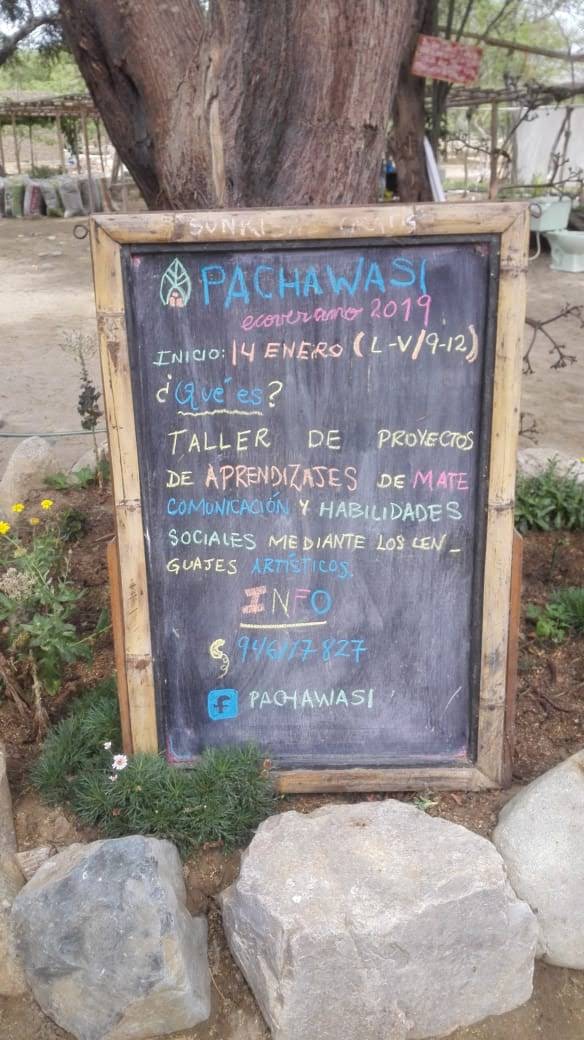 SONRISA GRATIS
PACHAWASI
ecoverano 2019
INICIO: 14 ENERO (L-V/9-12)
¿Qué es?
TALLER DE PROYECTOS
DE APRENDIZAJES DE MATE
COMUNICACIÓN Y HABILIDADES
SOCIALES MEDIANTE LOS LEN-
GUAJES ARTÍSTICOS.
INFO
946117827
f PACHAWASI